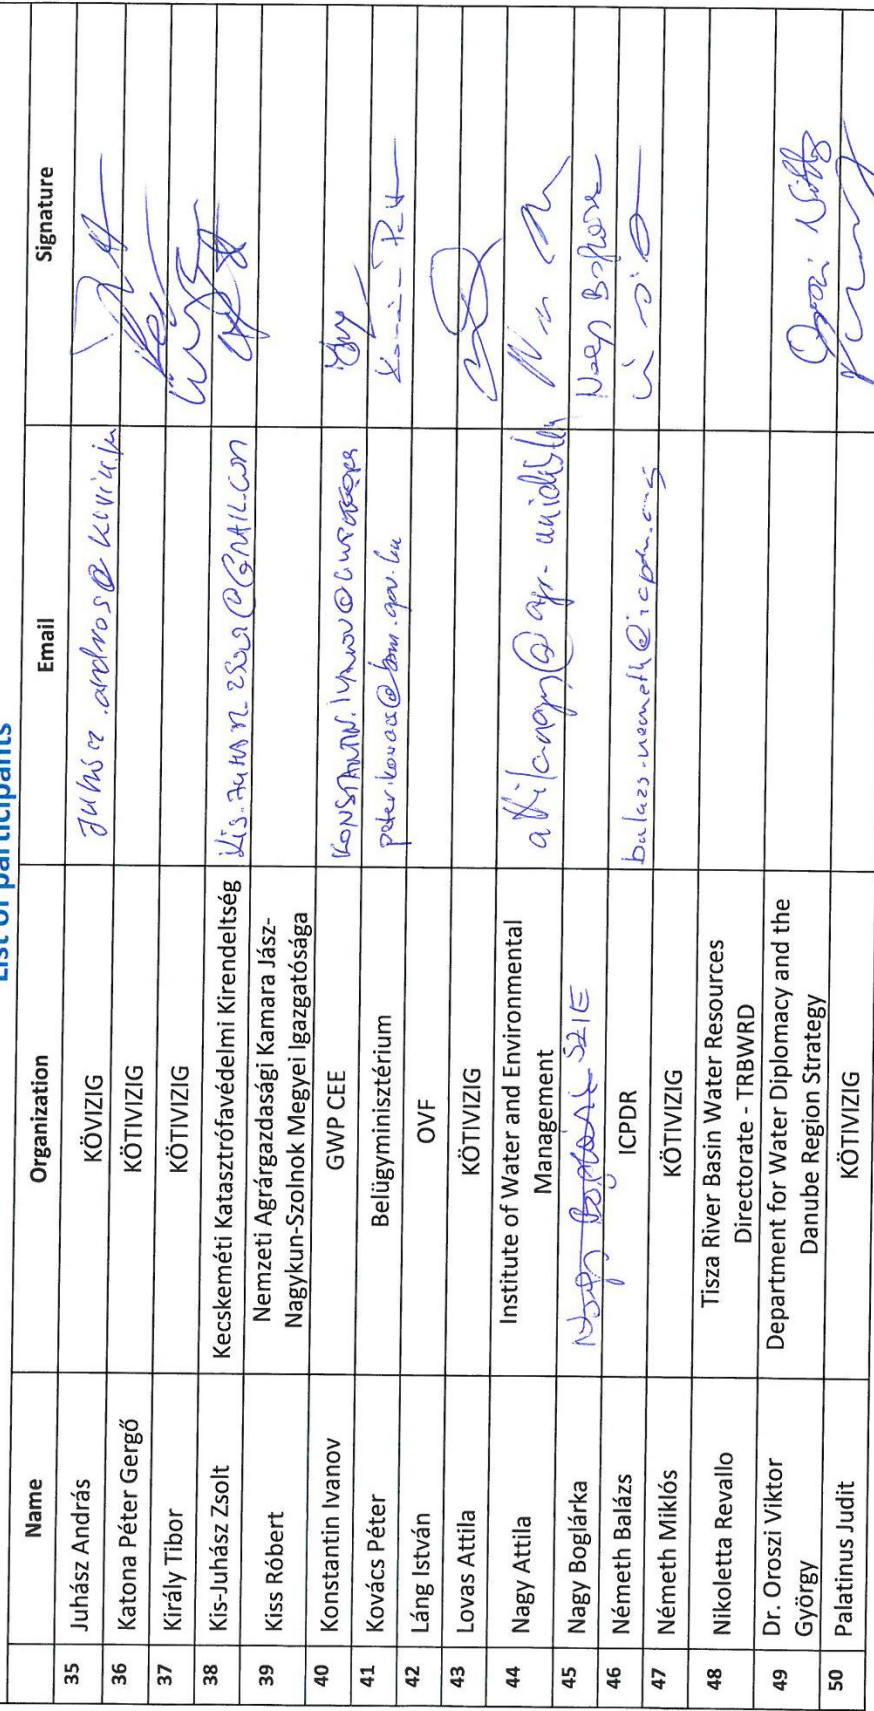 List of participants
Name Organization Email Signature
35 Juhász András KÖVIZIG
36 Katona Péter Gergő KÖTIVIZIG
37 Király Tibor KÖTIVIZIG
38 Kis-Juhász Zsolt Kecskeméti Katasztrófavédelmi Kirendeltség
39 Kiss Róbert Nemzeti Agrárgazdasági Kamara Jász-
Nagykun-Szolnok Megyei Igazgatósága
40 Konstantin Ivanov GWP CEE
41 Kovács Péter Belügyminisztérium peter.kovacs@bm.gov.hu
42 Láng István OVF
43 Lovas Attila KÖTIVIZIG
44 Nagy Attila Institute of Water and Environmental
Management
45 Nagy Boglárka Nagy Boglárka SZIE Nagy Boglárka
46 Németh Balázs ICPDR balazs.nemeth@icpdr.org
47 Németh Miklós KÖTIVIZIG
48 Nikoletta Revallo Tisza River Basin Water Resources
Directorate - TRBWRD
49 Dr. Oroszi Viktor
György Department for Water Diplomacy and the
Danube Region Strategy
50 Palatinus Judit KÖTIVIZIG